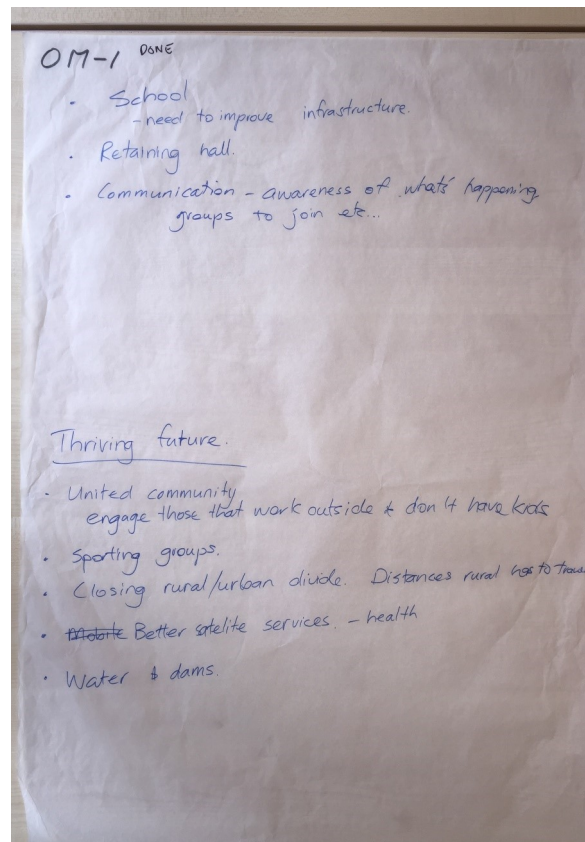 OM-1 DONE
• School
- need to improve infrastructure.
• Retaining hall.
• Communication - awareness of what's happening,
groups to join etc...
Thriving future.
• United community
engage those that work outside & don't have kids
• Sporting groups.
• Closing rural/urban divide. Distances rural has to
• Mobile Better satelite services. - health
• Water & dams.